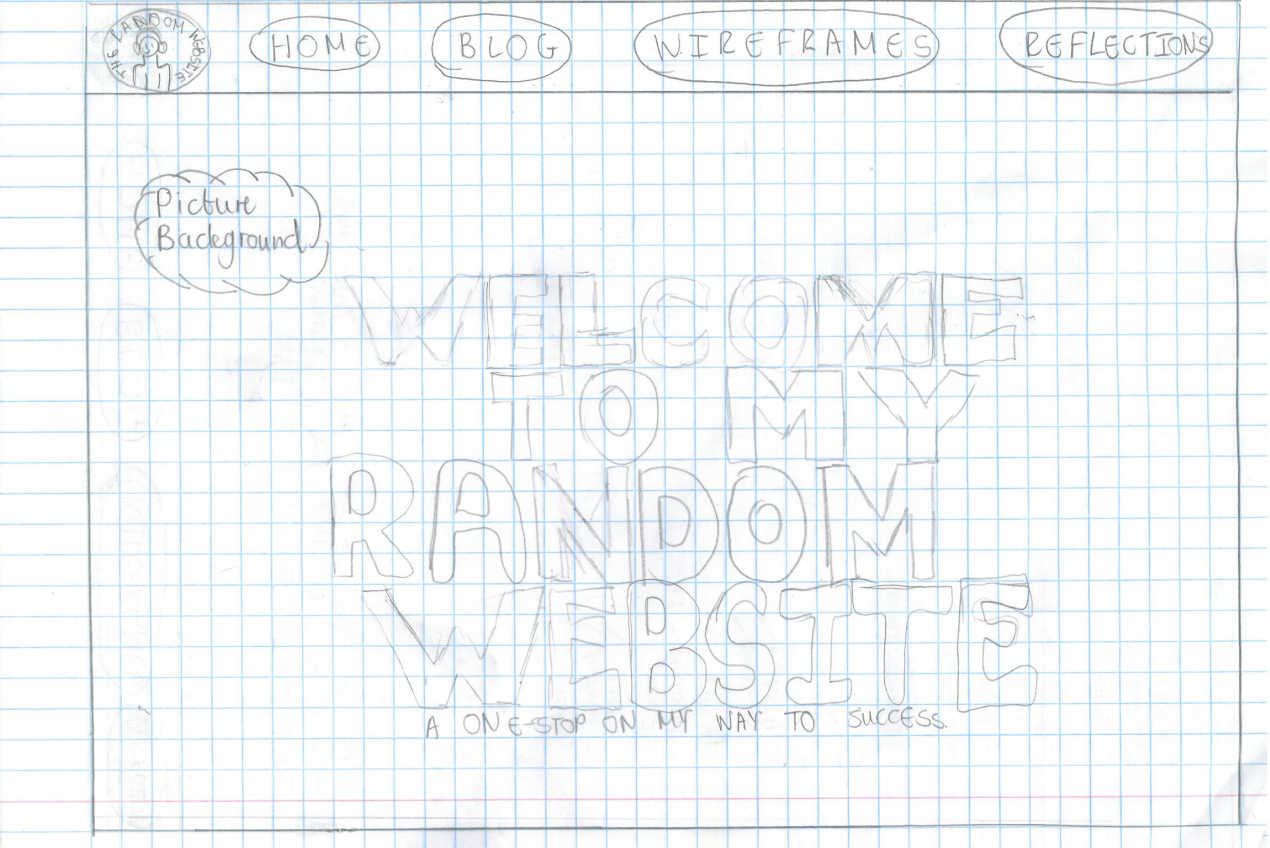 THE RANDOM WEBSITE
HOME
BLOG
WIREFRAMES
REFLECTIONS
Picture
Background
WELCOME
TO MY
RANDOM
WEBSITE
A ONE-STOP ON MY WAY TO SUCCESS.